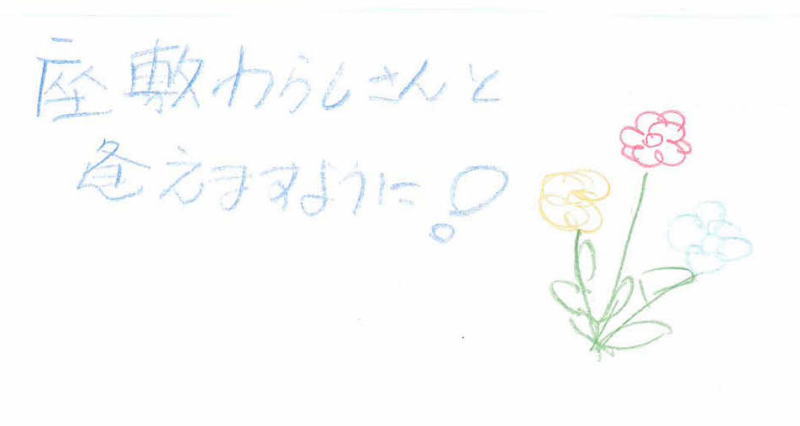 座敷わらしさんと
会えますように!